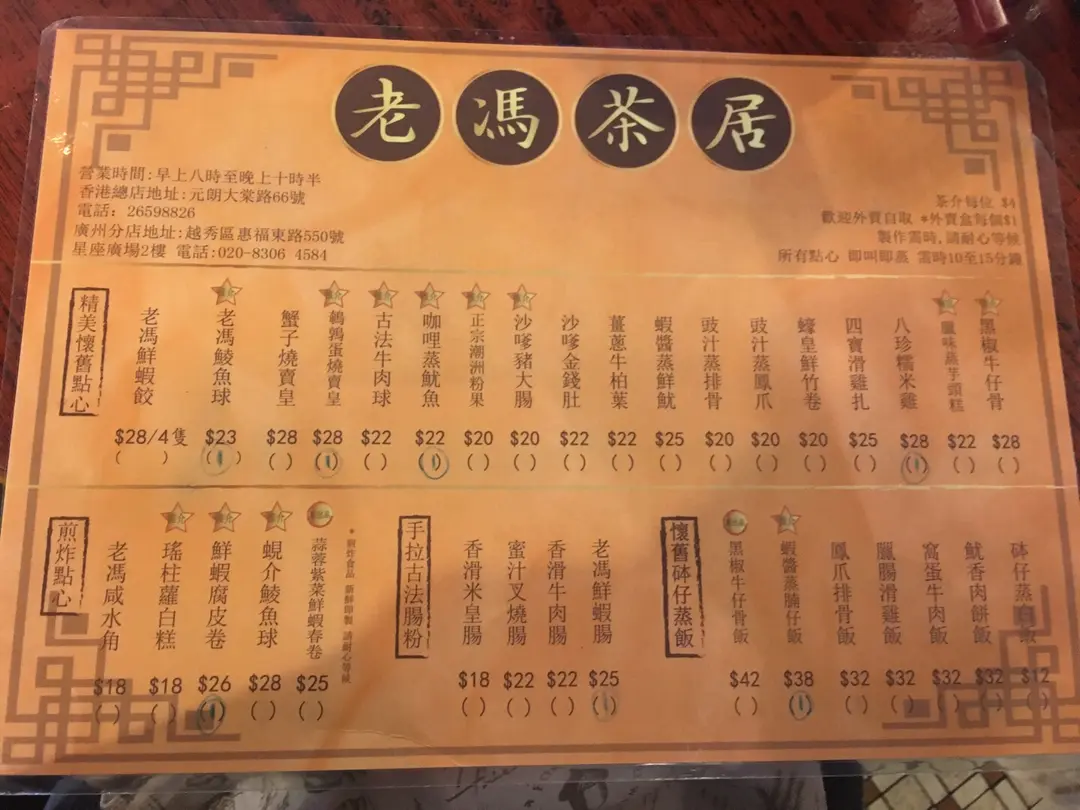 老馮茶居
營業時間:早上八時至晚上十時半
香港總店地址:元朗大棠路66號
電話: 26598826
廣州分店地址:越秀區惠福東路550號
星座廣場2樓 電話:020-8306 4584
茶介每位 $4
歡迎外賣自取 *外賣盒每個$1
製作需時,請耐心等候
所有點心 即叫即蒸 需時10至15分鐘
精美懷舊點心
老馮鮮蝦餃 $28/4隻 ( )
老馮鯪魚球 $23 (1)
蟹子燒賣皇 $28 ( )
鵪鶉蛋燒賣皇 $28 (1)
古法牛肉球 $22 ( )
咖哩蒸魷魚 $22 (1)
正宗潮洲粉果 $20 ( )
沙嗲豬大腸 $20 ( )
沙嗲金錢肚 $22 ( )
薑蔥牛柏葉 $22 ( )
蝦醬蒸鮮魷 $25 ( )
豉汁蒸排骨 $20 ( )
豉汁蒸鳳爪 $20 ( )
蠔皇鮮竹卷 $20 ( )
四寶滑雞扎 $25 ( )
八珍糯米雞 $28 (1)
臘味蒸芋頭糕 $22 ( )
黑椒牛仔骨 $28 ( )
煎炸點心
老馮咸水角 $18 ( )
瑤柱蘿白糕 $18 ( )
鮮蝦腐皮卷 $26 (1)
蜆介鯪魚球 $28 ( )
蒜蓉紫菜鮮蝦春卷 $25 ( )
*煎炸食品 新鮮即製 請耐心等候
手拉古法腸粉
香滑米皇腸 $18 ( )
蜜汁叉燒腸 $22 ( )
香滑牛肉腸 $22 ( )
老馮鮮蝦腸 $25 (1)
懷舊砵仔蒸飯
黑椒牛仔骨飯 $42 ( )
蝦醬蒸腩仔飯 $38 (1)
鳳爪排骨飯 $32 ( )
臘腸滑雞飯 $32 ( )
窩蛋牛肉飯 $32 ( )
魷香肉餅飯 $32 ( )
砵仔蒸飯 $12 ( )